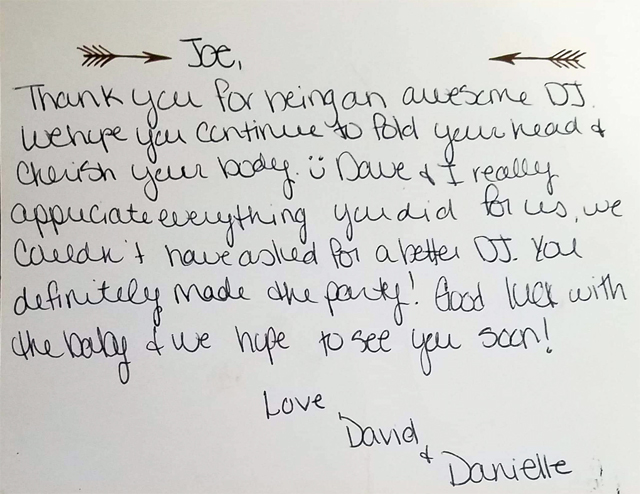 Joe,
Thank you for being an awesome DJ.
We hope you continue to fold your head &
cherish your body. ü Dave & I really
appriciate everything you did for us, we
couldn't have asked for a better DJ. You
definitely made the party! Good luck with
the baby & we hope to see you soon!
Love,
David
&
Danielle